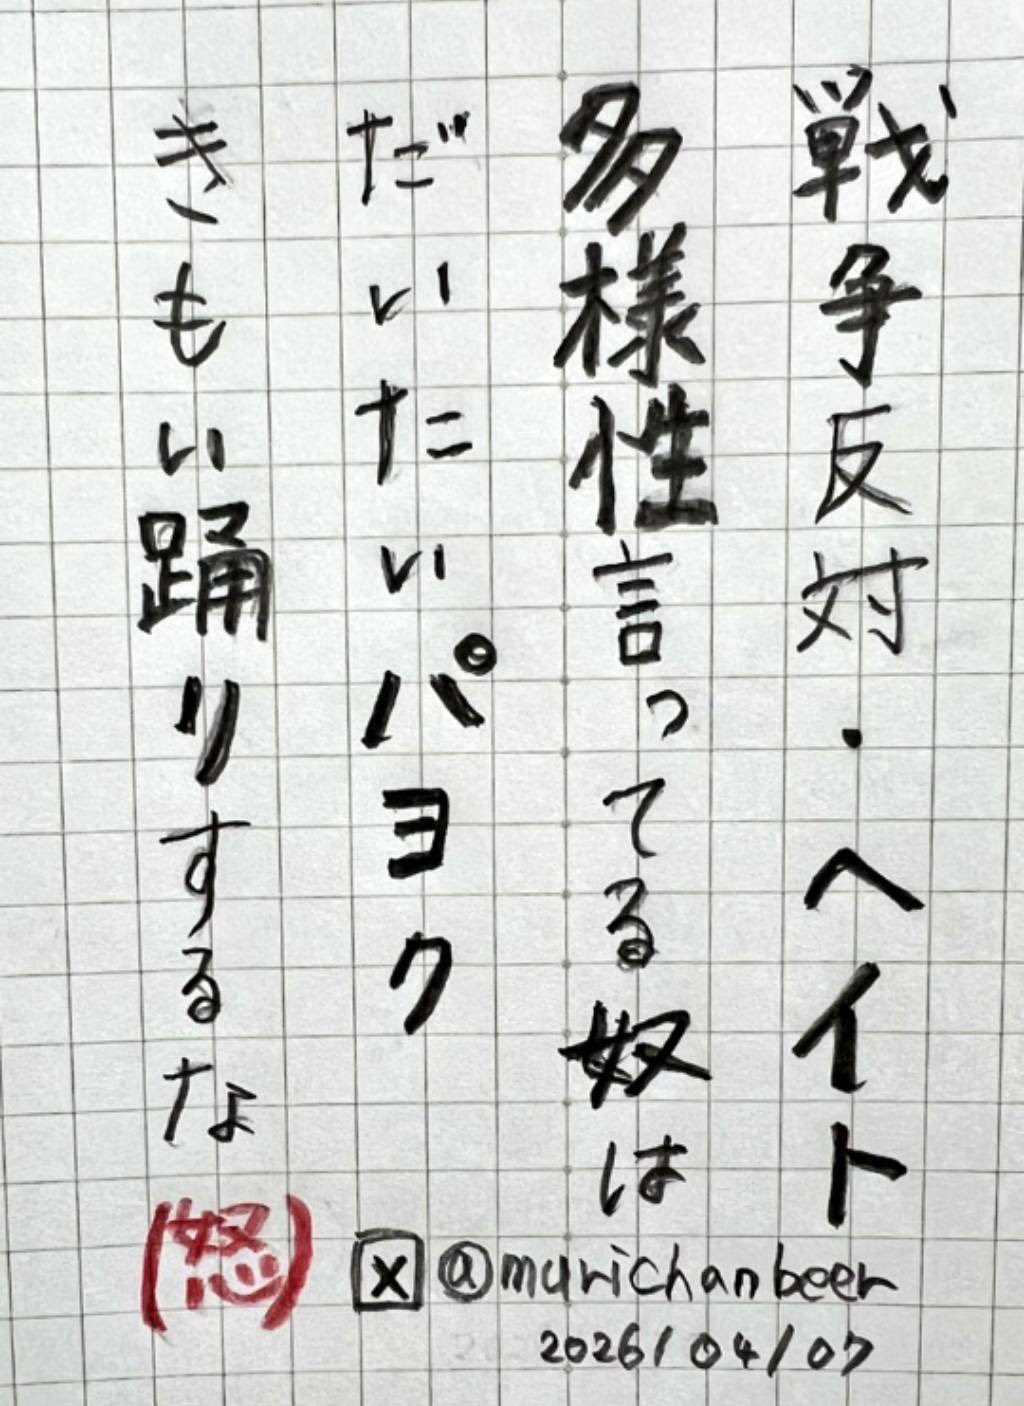 戦争反対・ヘイト
多様性言ってる奴は
だいたいパヨク
きもい踊りするな
(怒)
X @murichanbeer
2026/04/07